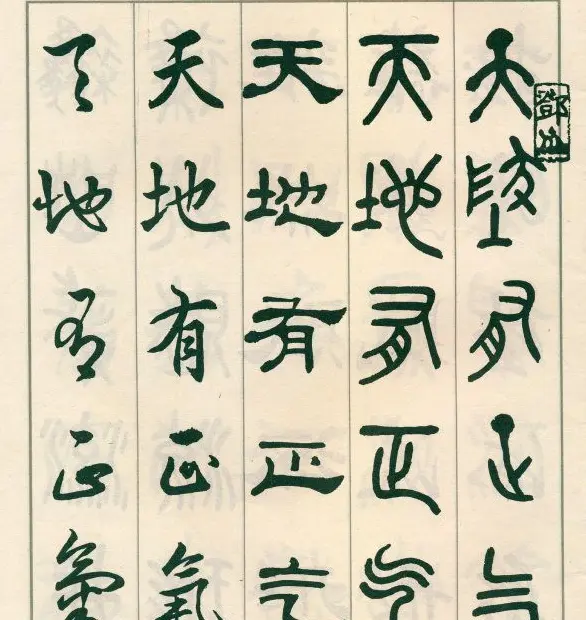 天地有正气
天地有正气
天地有正气
天地有正氣
天地有正氣